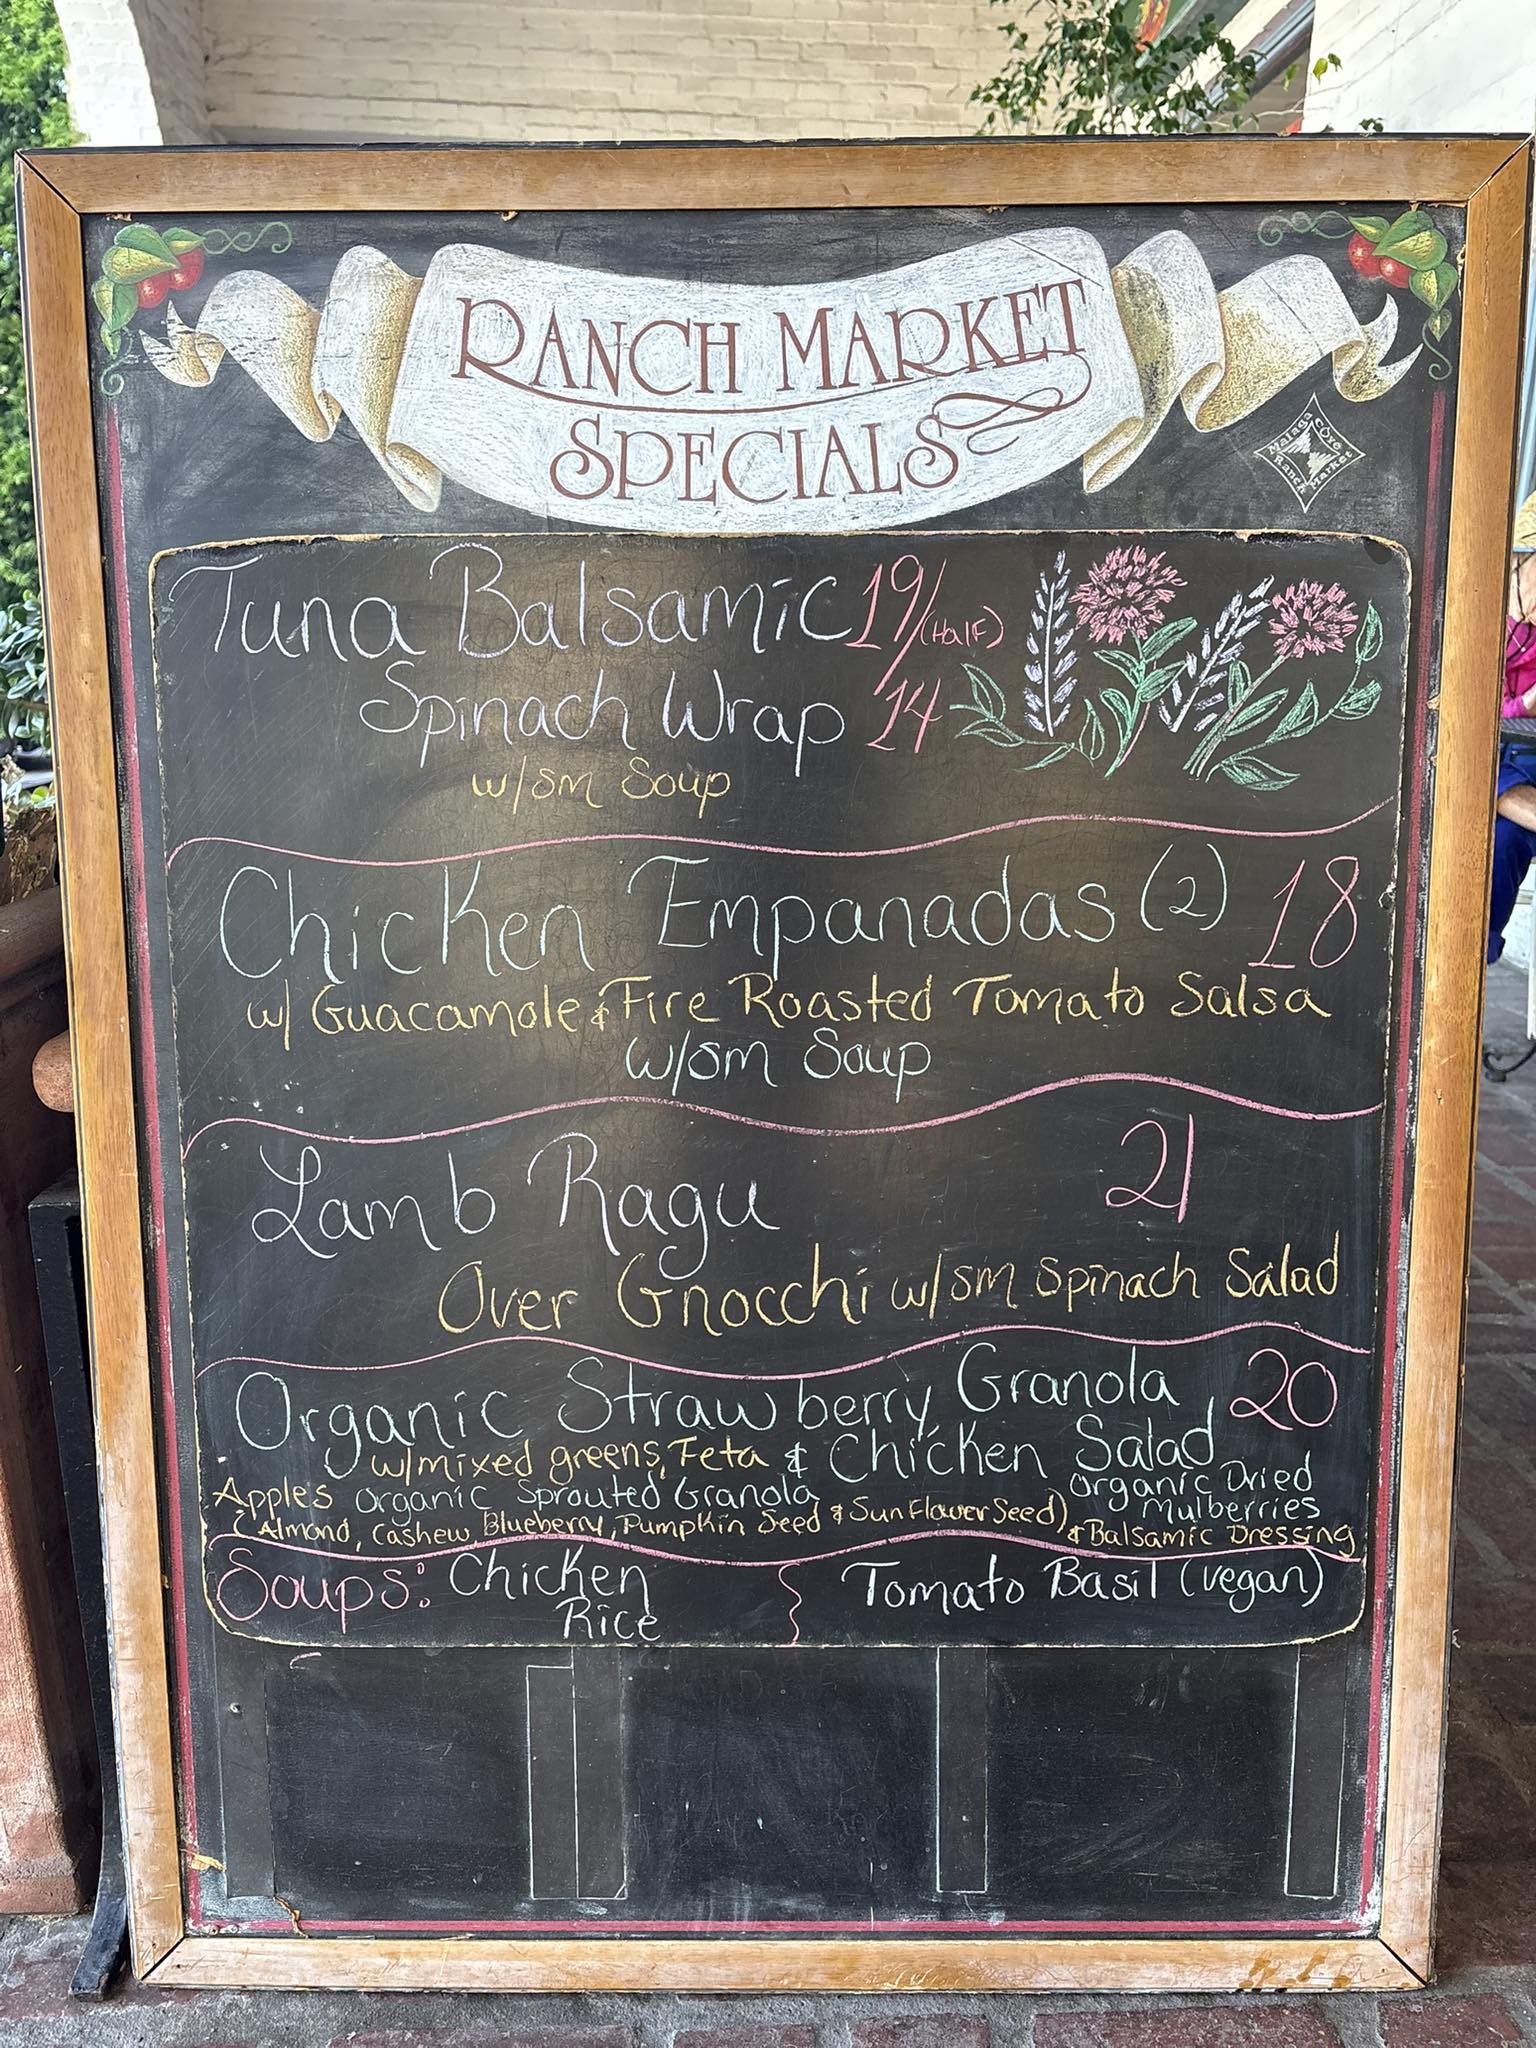 RANCH MARKET
SPECIALS
Malaga Cove
Ranch Market
Tuna Balsamic 19/(Half)
Spinach Wrap 14
w/sm Soup
Chicken Empanadas (2) 18
w/ Guacamole & Fire Roasted Tomato Salsa
w/sm Soup
Lamb Ragu 21
Over Gnocchi w/sm Spinach Salad
Organic Strawberry Granola 20
w/mixed greens, Feta & Chicken Salad
Apples Organic Sprouted Granola Organic Dried
Mulberries
(Almond, Cashew, Blueberry, Pumpkin Seed & SunFlower Seed) & Balsamic Dressing
Soups: Chicken Tomato Basil (vegan)
Rice